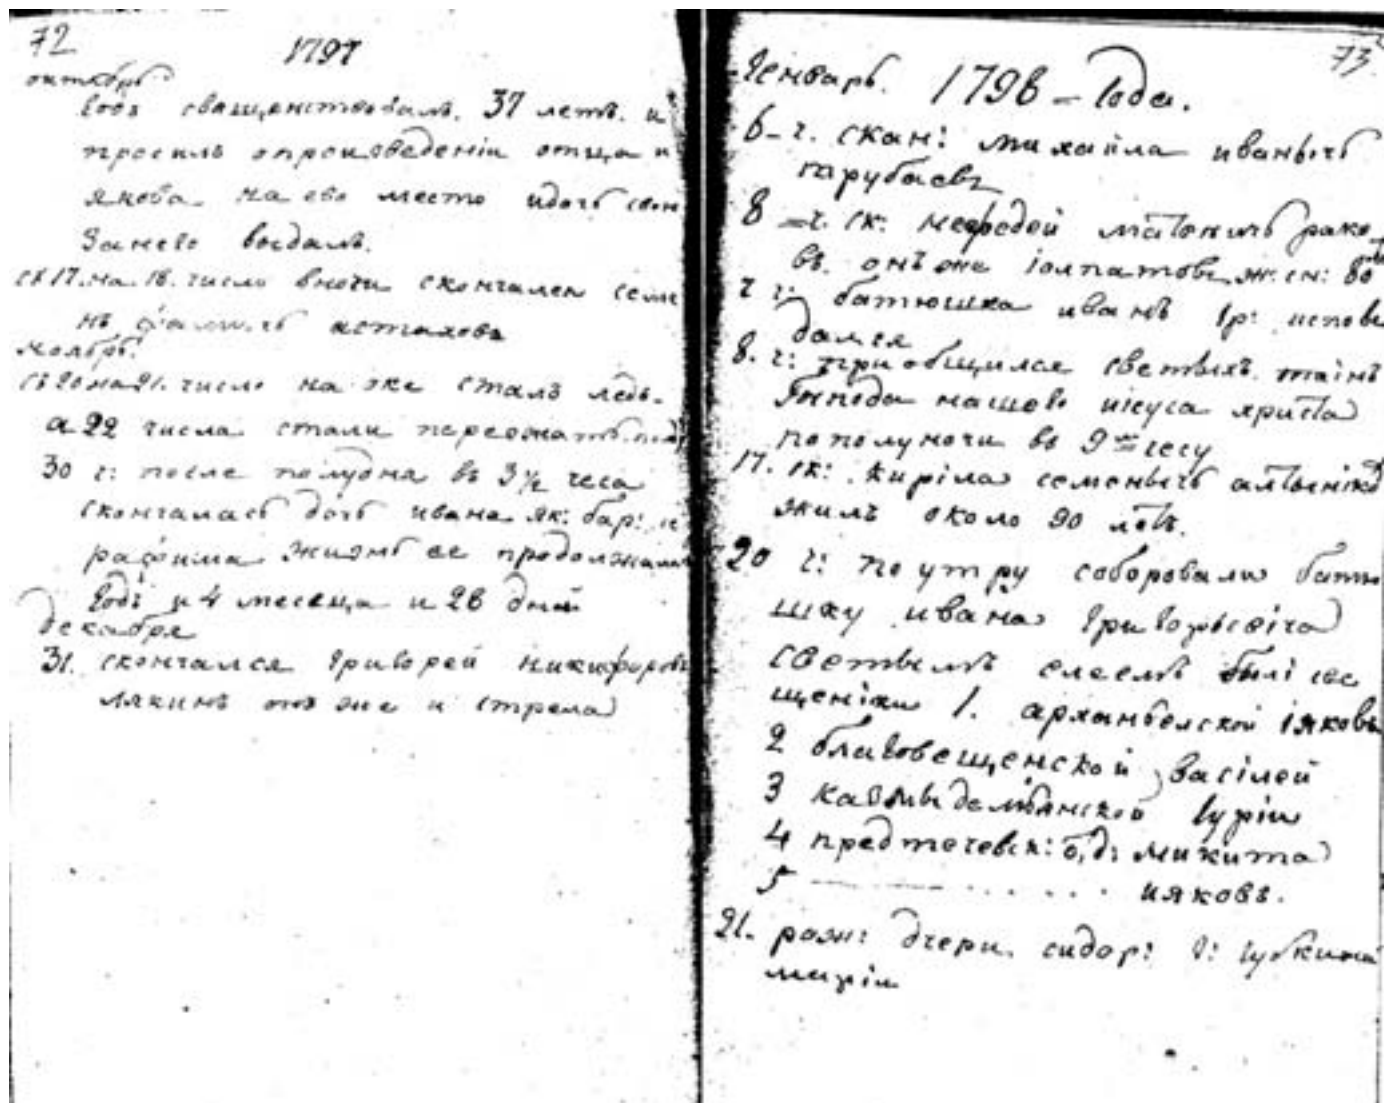 72
1797
октябрь
годъ священствовалъ. 37 летъ. и
просилъ опроизведении отца и
якова на ево место идочь свою
Занево выдалъ.
съ 17. на. 18. число вночи скончался семе
нъ астаховъ
ноябрь:
съ 20 на 21. число на оке сталъ ледъ.
а 22 числа стали переежать
30 ч: после полудня въ 3 1/2 часа
скончалась дочь ивана як: бар:
рафима жизнь ее продолжалась
годъ и 4 месеца и 28 дней
декабря
31. скончался григорей никифоровъ
лякинъ онъ же и стрела
73
Генварь. 1798 – года.
6 – ч. скан: михайла иванычь
трубаевъ
8 – ч. ск: мефодей
въ. онъ же
ч: батюшка иванъ гр: испове
дался
8. ч: приобщился светыхъ таинъ
Господа нашего исуса христа
пополуночи въ 9 м часу
17. ск: кирила семенычь
жилъ около 90 летъ.
20 ч: поутру соборовали батю
шку ивана григорьевича
светымъ елеемъ были све
щеники 1. архангелской іяковъ
2 благовещенской василей
3 казмыдемьянской гурій
4 предтечевск: микита
5 – – – . . . . . ияковъ.
21. рож: дчери сидор: г: губкина
марія